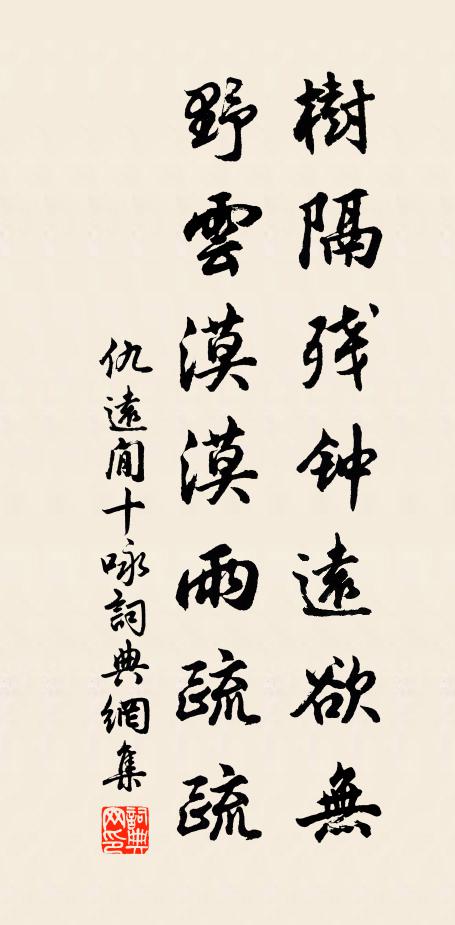 樹隔残钟遠欲無
野雲漠漠雨疏疏
仇遠閒十咏詞典網集
詞典網印